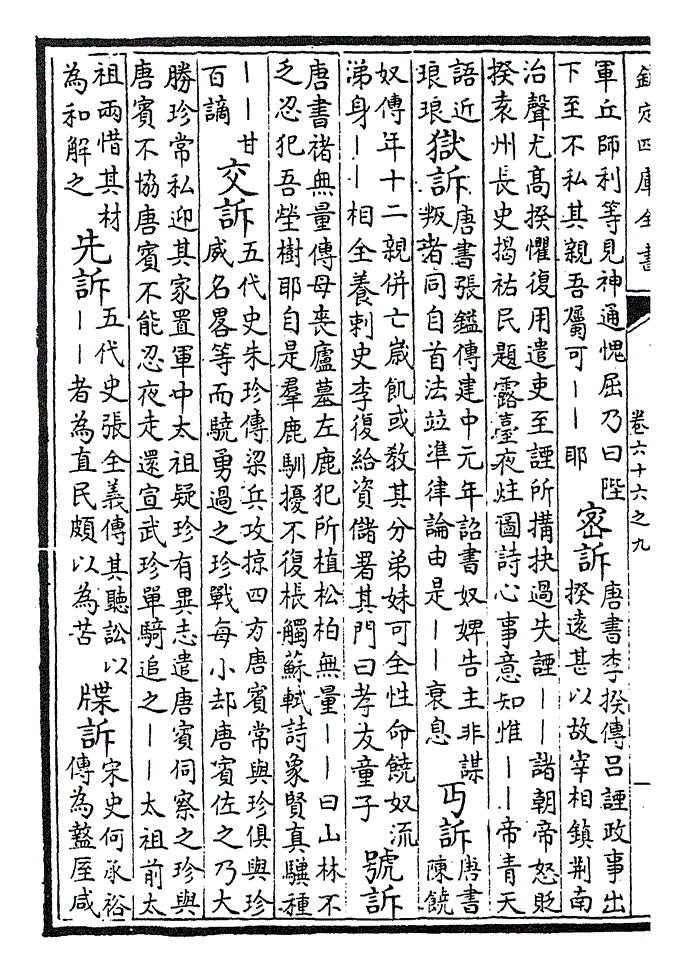 欽定四庫全書
卷六十六之九
軍丘師利等見神通愧屈乃曰陛
下至不私其親吾屬可——耶
密訴
唐書李揆傳呂諲政事出
揆遠甚以故宰相鎮荆南
治聲尤高揆懼復用遣吏至諲所搆抉過失諲——諸朝帝怒貶
揆袁州長史揭祐民題露臺夜炷圖詩心事意知惟——帝青天
語近
琅琅
獄訴
唐書張鎰傳建中元年詔書奴婢告主非謀
叛者同自首法竝準律論由是——衰息
丐訴
唐書
陳饒
奴傳年十二親併亡歲飢或教其分弟妹可全性命饒奴流
涕身——相全養刺史李復給資儲署其門曰孝友童子
號訴
唐書褚無量傳母喪廬墓左鹿犯所植松柏無量——曰山林不
乏忍犯吾塋樹耶自是羣鹿馴擾不復棖觸蘇軾詩象賢真驥種
——甘
百謫
交訴
五代史朱珍傳梁兵攻掠四方唐賓常與珍俱與珍
威名畧等而驍勇過之珍戰每小却唐賓佐之乃大
勝珍常私迎其家置軍中太祖疑珍有異志遣唐賓伺察之珍與
唐賓不協唐賓不能忍夜走還宣武珍單騎追之——太祖前太
祖兩惜其材
為和解之
先訴
五代史張全義傳其聽訟以
——者為直民頗以為苦
牒訴
宋史何承裕
傳為盩厔咸